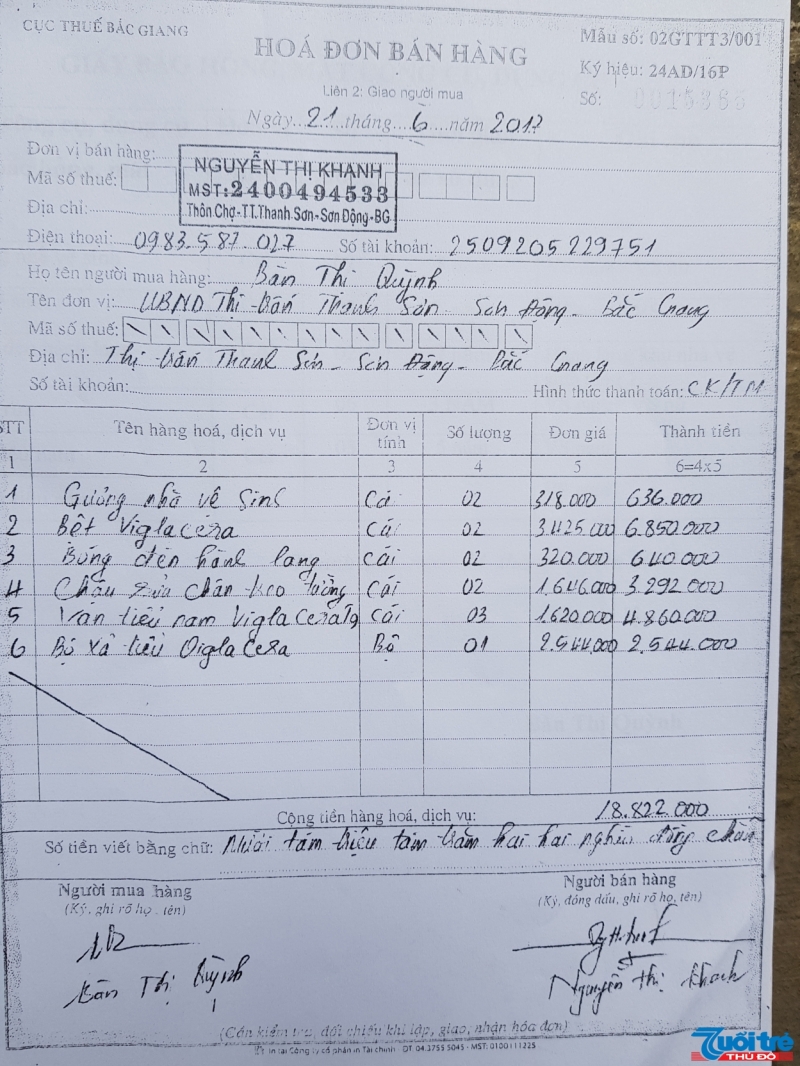 CỤC THUẾ BẮC GIANG
HOÁ ĐƠN BÁN HÀNG
Mẫu số: 02GTTT3/001
Ký hiệu: 24AD/16P
Liên 2: Giao người mua
Số:
Ngày 21 tháng 6 năm 2017
Đơn vị bán hàng:
NGUYỄN THỊ KHANH
Mã số thuế:
MST: 2400494533
Địa chỉ:
Thôn Chợ-TT.Thanh Sơn-Sơn Động-BG
Điện thoại: 0983.587.027 Số tài khoản: 2509205229751
Họ tên người mua hàng: Bàn Thị Quỳnh
Tên đơn vị: UBND Thị trấn Thanh Sơn - Sơn Động - Bắc Giang
Mã số thuế:
Địa chỉ: Thị trấn Thanh Sơn - Sơn Động - Bắc Giang
Số tài khoản: Hình thức thanh toán: CK/TM
STT Tên hàng hoá, dịch vụ Đơn vị tính Số lượng Đơn giá Thành tiền
1 2 3 4 5 6=4x5
1 Gương nhà vệ sinh Cái 02 318.000 636.000
2 Bệt Viglacera Cái 02 3.425.000 6.850.000
3 Bóng đèn hành lang Cái 02 320.000 640.000
4 Chậu rửa chân treo tường Cái 02 1.646.000 3.292.000
5 Van tiểu nam Viglacera Cái 03 1.620.000 4.860.000
6 Bộ xả tiểu Viglacera Bộ 01 2.544.000 2.544.000
Cộng tiền hàng hoá, dịch vụ: 18.822.000
Số tiền viết bằng chữ: Mười tám triệu tám trăm hai hai nghìn đồng chẵn
Người mua hàng
(Ký, ghi rõ họ, tên)
Người bán hàng
(Ký, đóng dấu, ghi rõ họ, tên)
Bàn Thị Quỳnh
Nguyễn Thị Khanh
(Cần kiểm tra, đối chiếu khi lập, giao, nhận hóa đơn)
In tại Công ty cổ phần in Tài chính ĐT: 04.3755 5045 - MST: 0100111225
Tuổi trẻ
THỦ ĐÔ